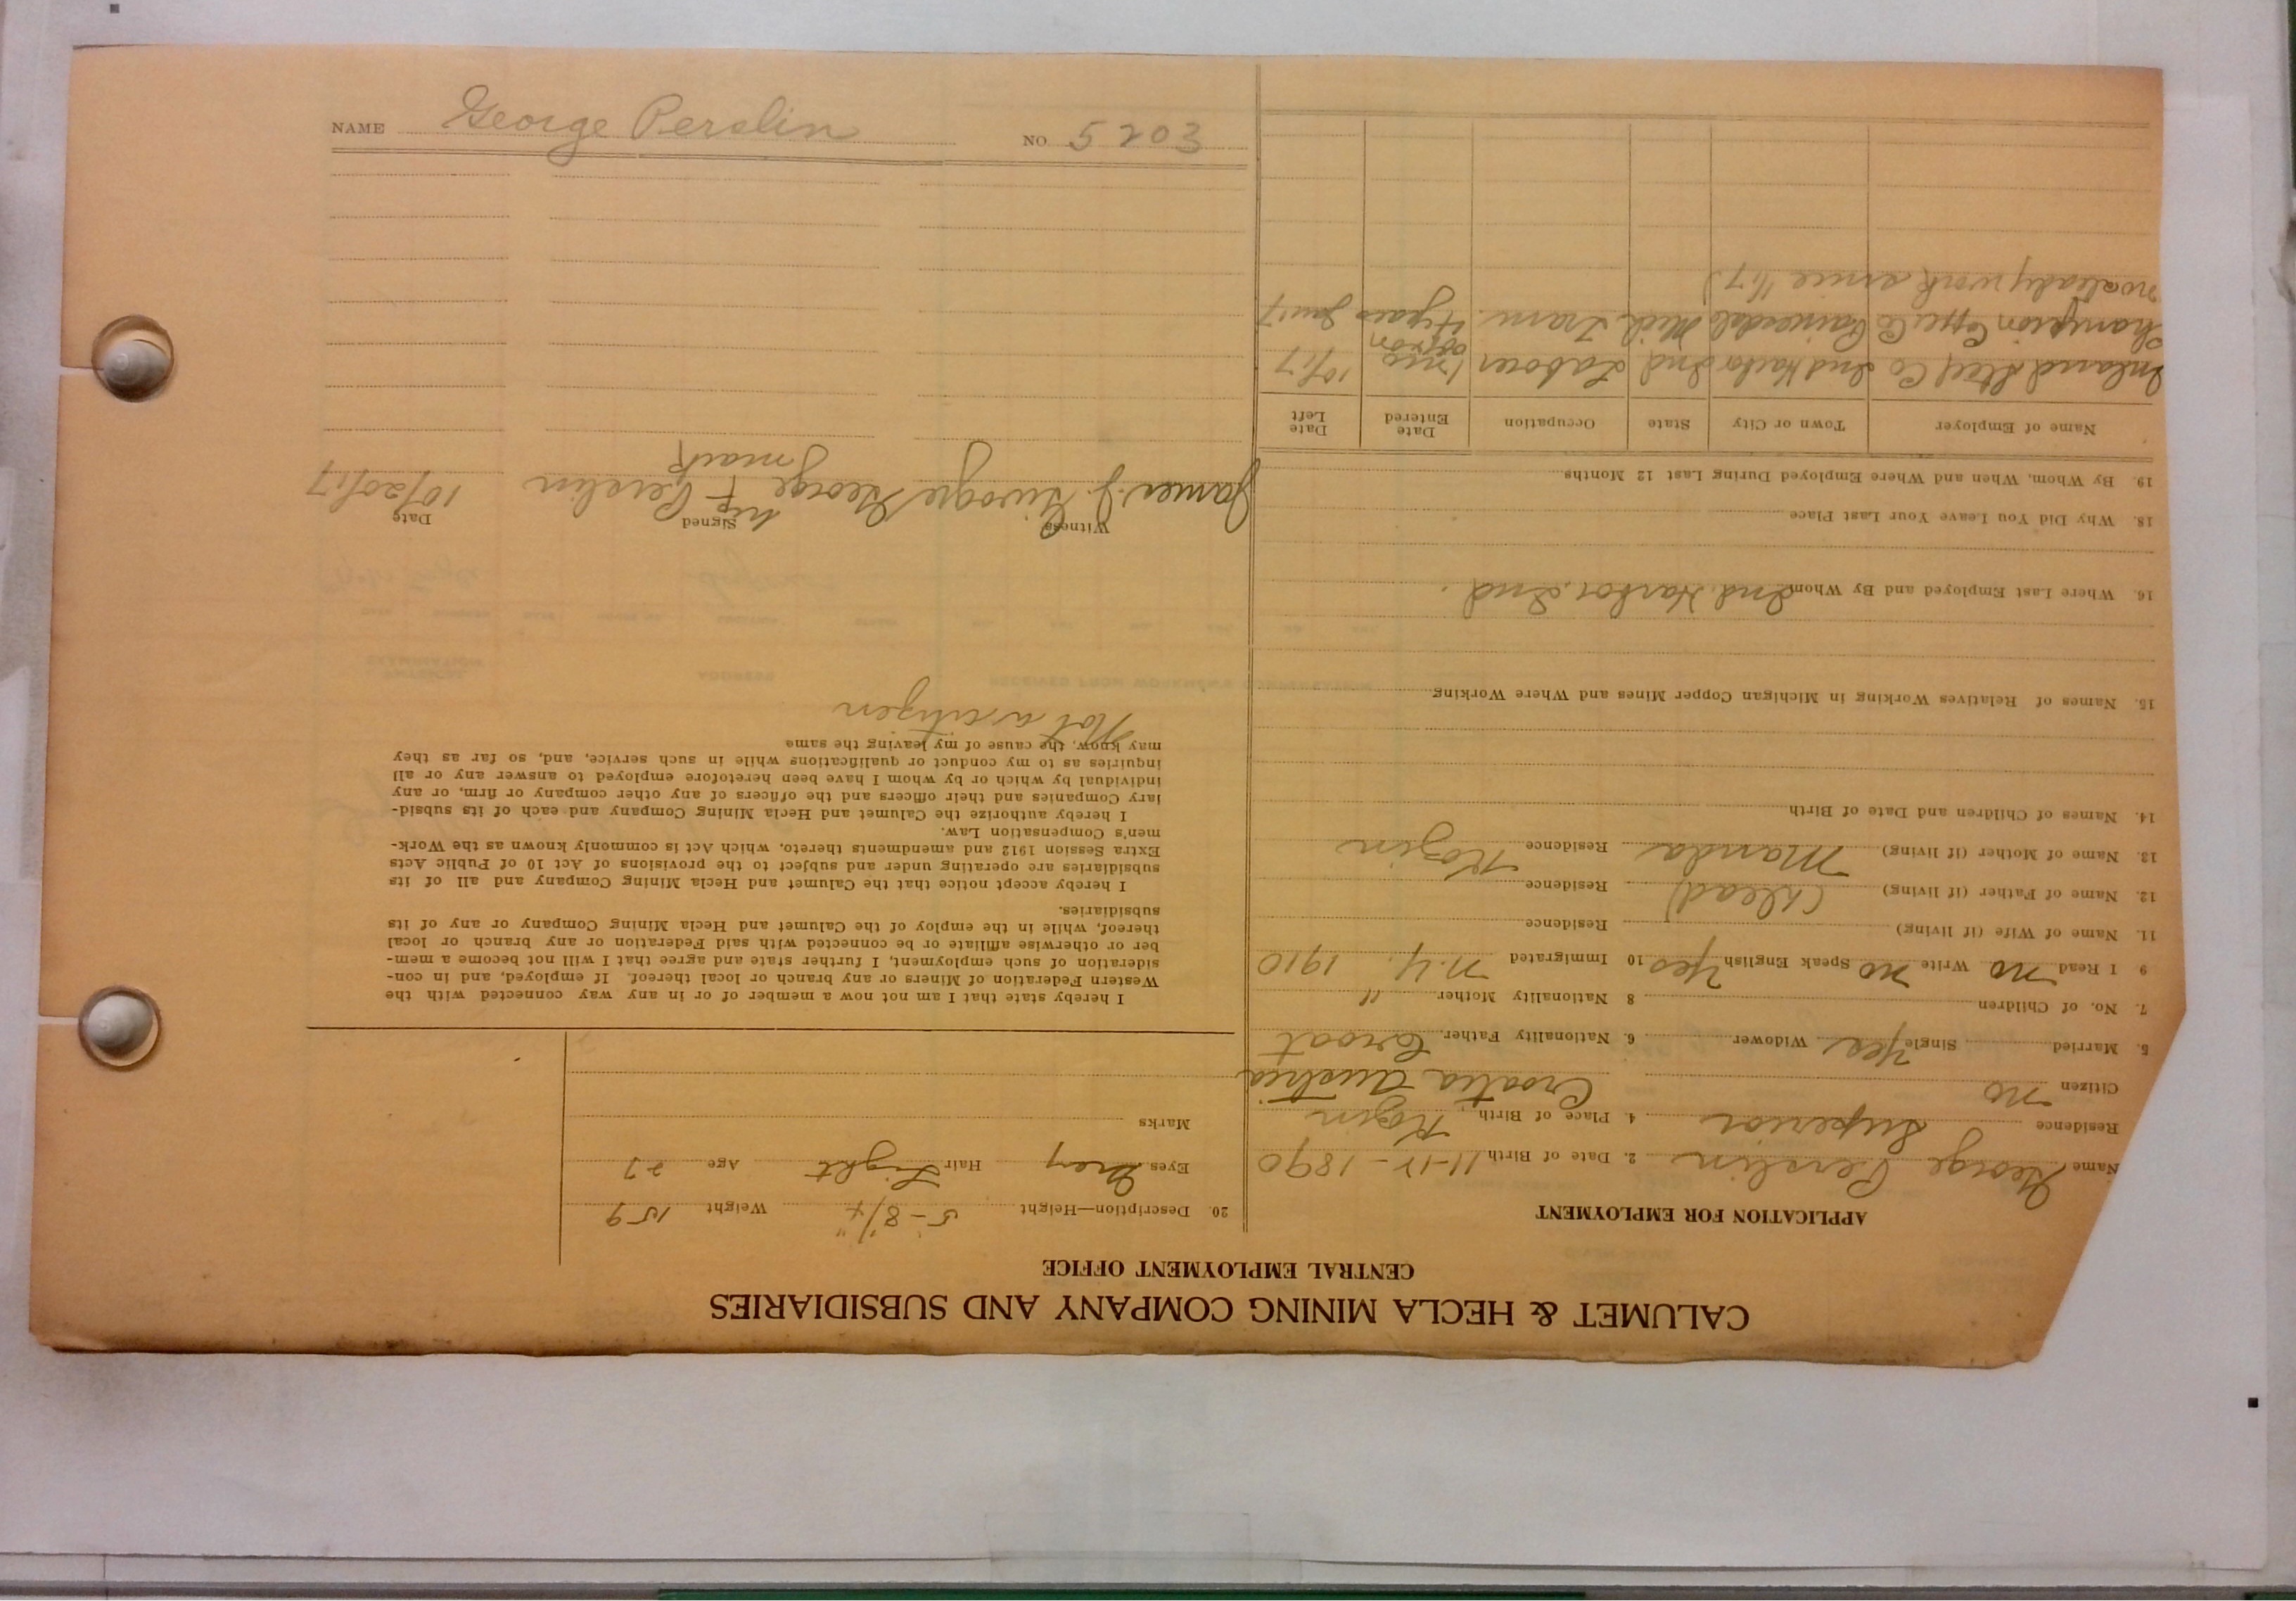 CALUMET & HECLA MINING COMPANY AND SUBSIDIARIES
CENTRAL EMPLOYMENT OFFICE
APPLICATION FOR EMPLOYMENT
Name George Perslin 2. Date of Birth 11-12-1890
Residence Superior 4. Place of Birth Kozin
Citizen no Croatia Austria
5. Married Single Yes Widower 6. Nationality Father Croat
7. No. of Children 8 Nationality Mother "
9 I Read no Write no Speak English Yes 10 Immigrated N.Y. 1910
11. Name of Wife (if living) Residence
12. Name of Father (if living) (dead) Residence
13. Name of Mother (if living) Manda Residence Kozin
14. Names of Children and Date of Birth
15. Names of Relatives Working in Michigan Copper Mines and Where Working
16. Where Last Employed and By Whom Ind. Harbor, Ind.
18. Why Did You Leave Your Last Place
19. By Whom, When and Where Employed During Last 12 Months
Name of Employer Town or City State Occupation Date Entered Date Left
Inland Steel Co Ind Harbor Ind Labour 1 mo 10/17
Champion Copper Co Painesdale Mich Tram. 4 years Jan 17
no steady work since 1/17)
20. Description—Height 5-8 1/4" Weight 159
Eyes Grey Hair Light Age 27
Marks
I hereby state that I am not now a member of or in any way connected with the
Western Federation of Miners or any branch or local thereof. If employed, and in con-
sideration of such employment, I further state and agree that I will not become a mem-
ber or otherwise affiliate or be connected with said Federation or any branch or local
thereof, while in the employ of the Calumet and Hecla Mining Company or any of its
subsidiaries.
I hereby accept notice that the Calumet and Hecla Mining Company and all of its
subsidiaries are operating under and subject to the provisions of Act 10 of Public Acts
Extra Session 1912 and amendments thereto, which Act is commonly known as the Work-
men's Compensation Law.
I hereby authorize the Calumet and Hecla Mining Company and each of its subsid-
iary Companies and their officers and the officers of any other company or firm, or any
individual by which or by whom I have been heretofore employed to answer any or all
inquiries as to my conduct or qualifications while in such service, and, so far as they
may know, the cause of my leaving the same
Not a citizen
Witness Signed Date
James J. George his + Perslin 10/20/17
mark
NAME George Perslin NO 5203